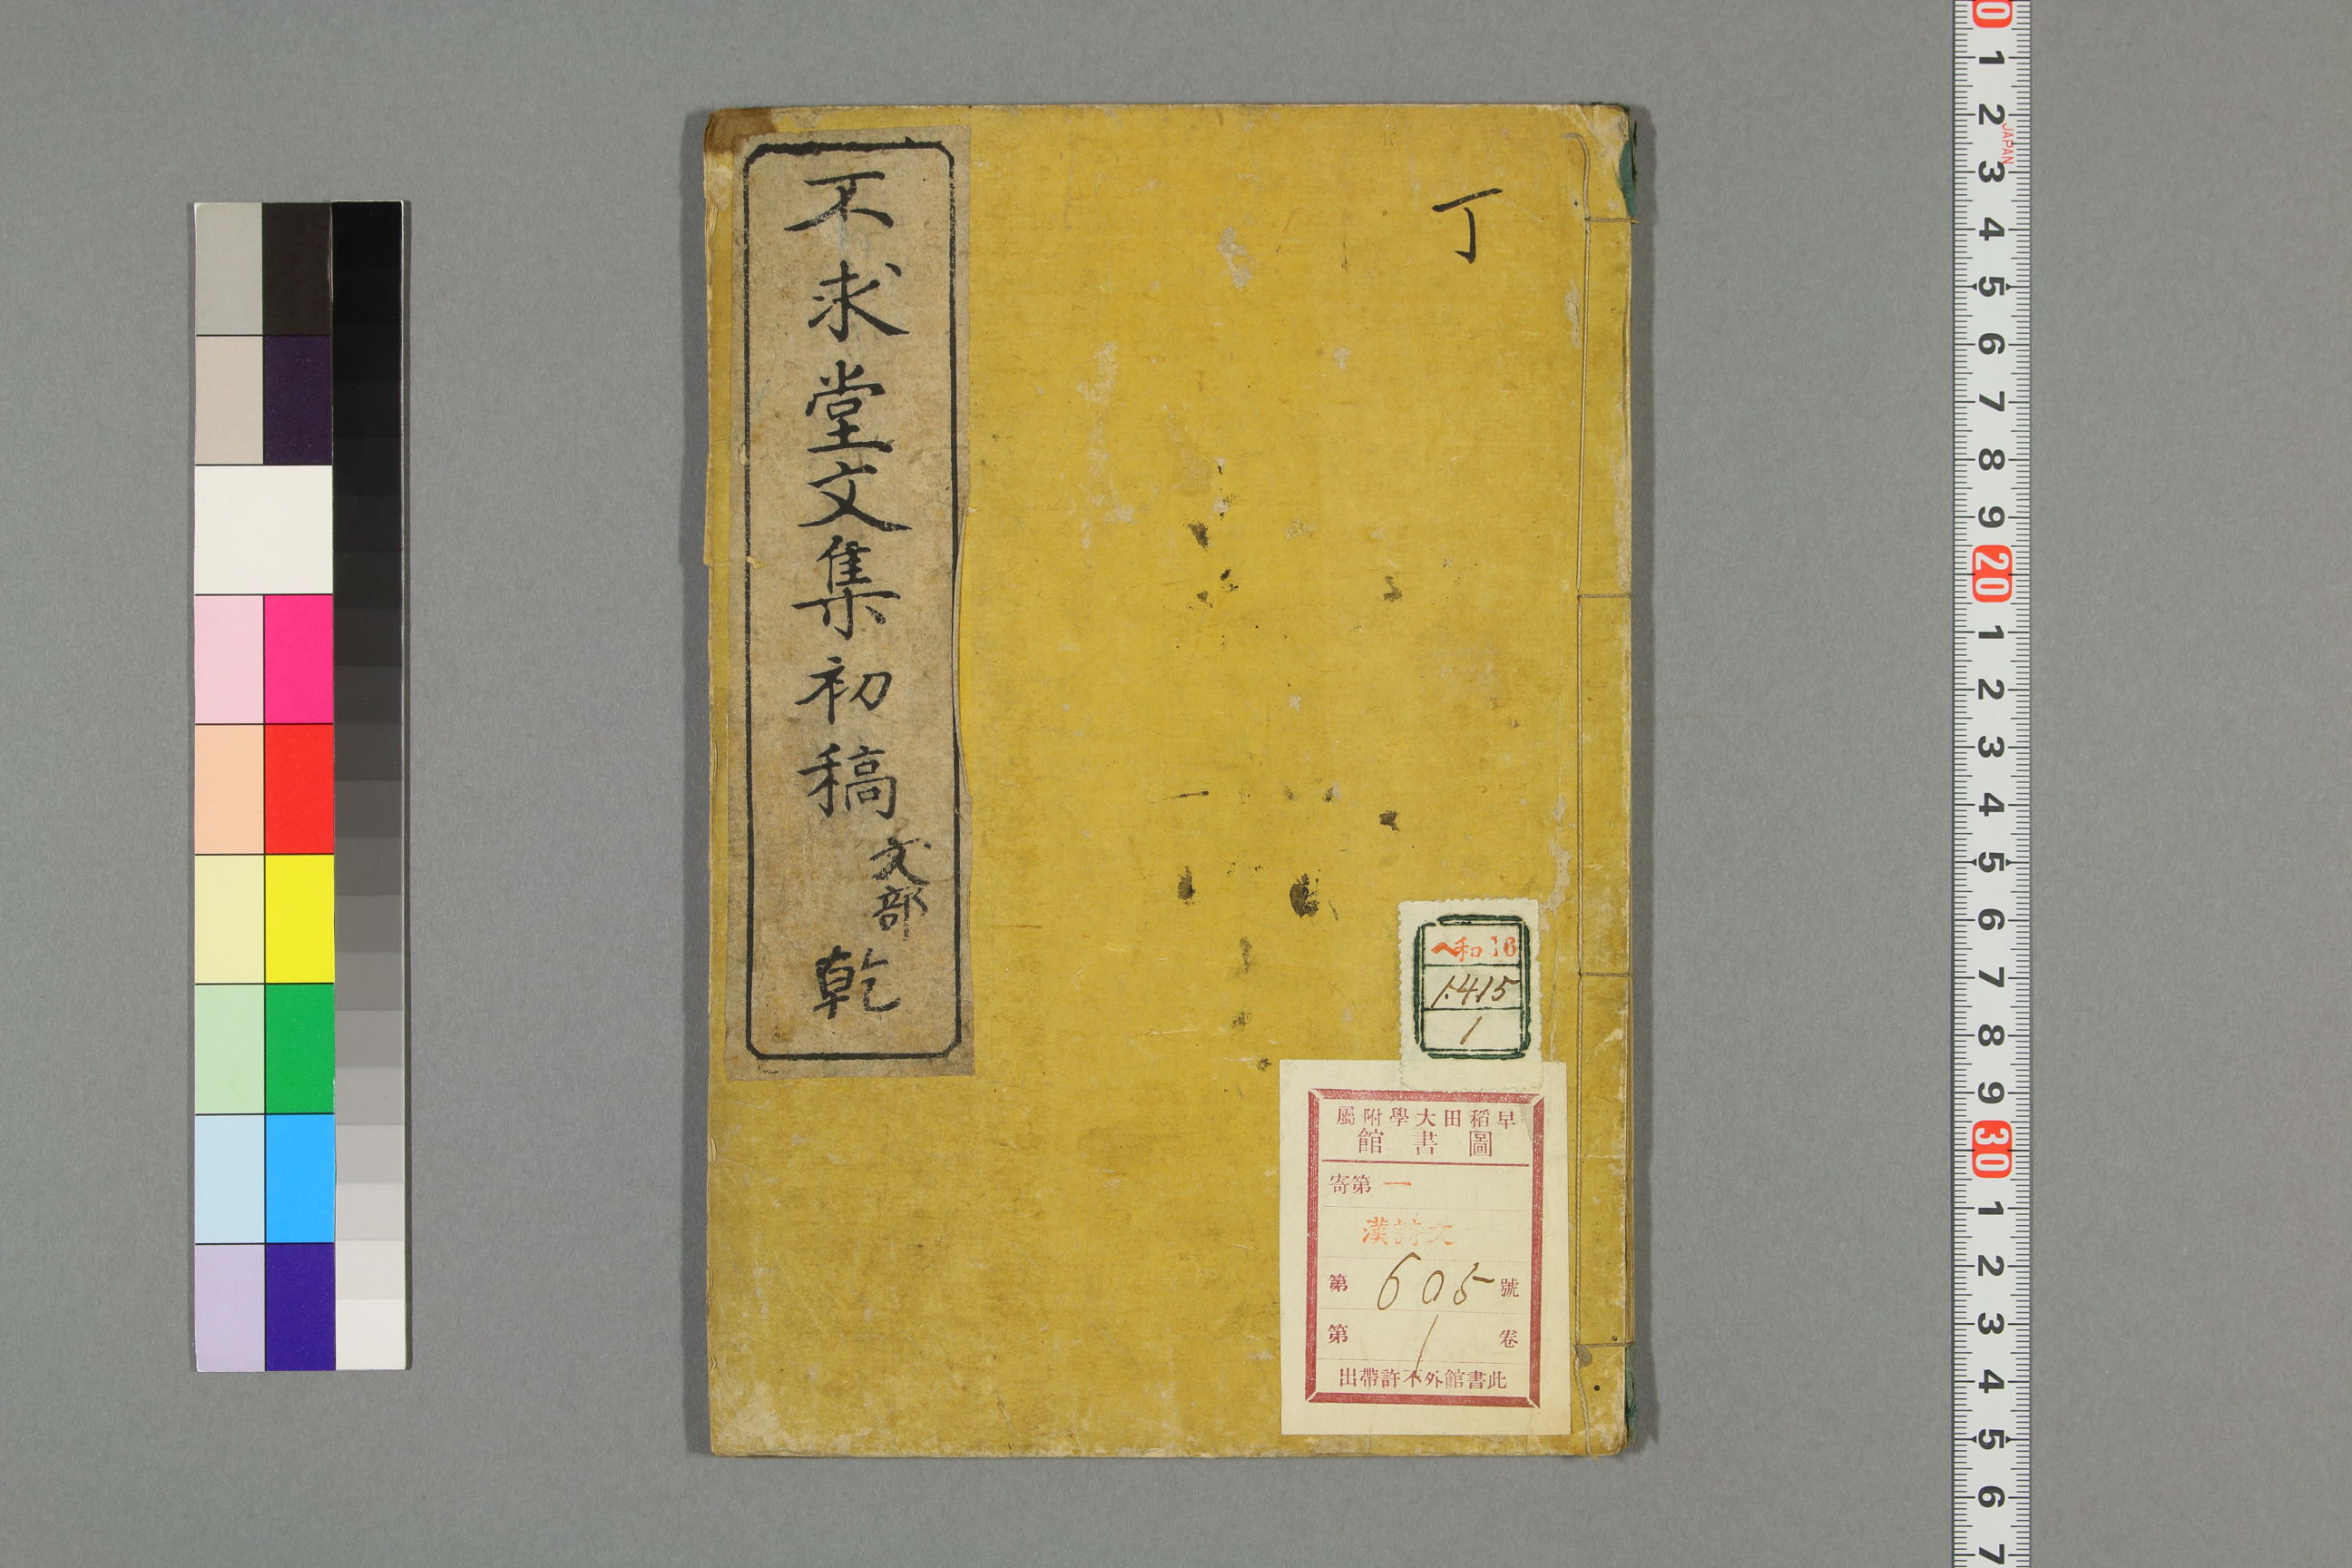 丁
不求堂文集初稿
文部
乾
ヘ和16
1415
1
屬附學大田稻早
館書圖
寄第一
漢詩文
第605號
第1卷
出帶許不外館書此
0
1
2
JAPAN
3
4
5
6
7
8
9
20
1
2
3
4
5
6
7
8
9
30
1
2
3
4
5
6
7